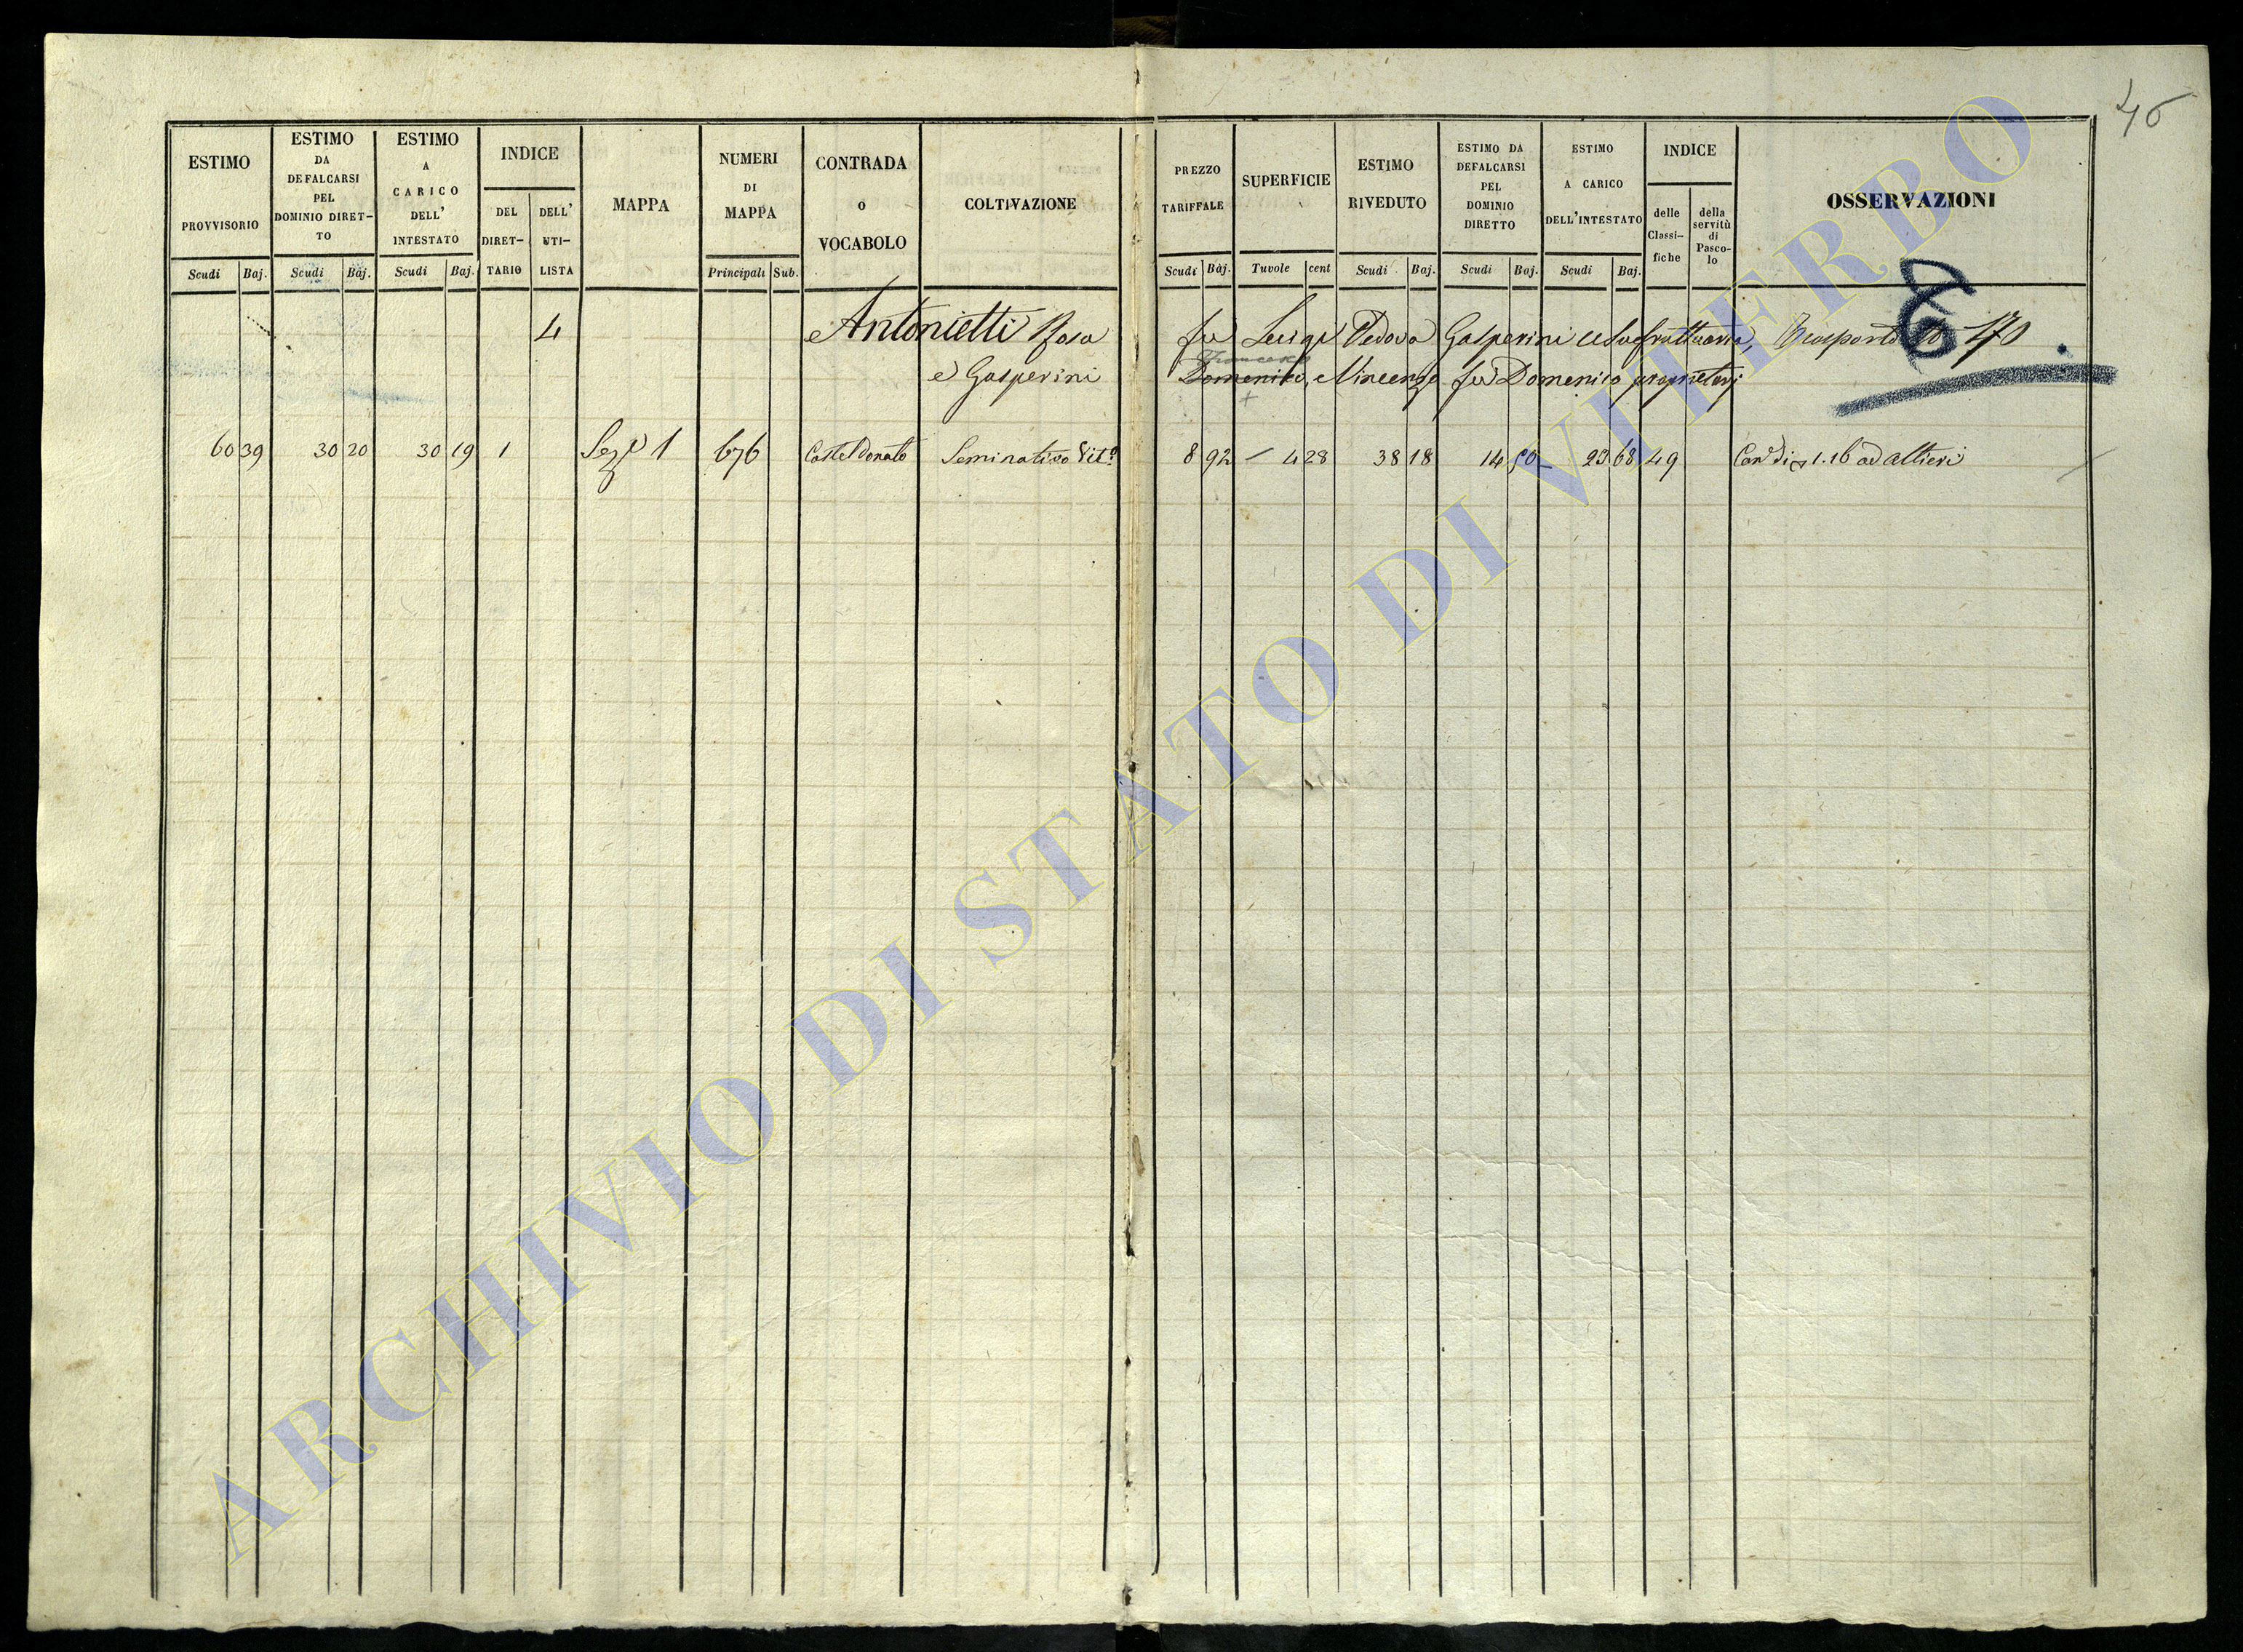 46
ESTIMO PROVVISORIO
Scudi Baj.
ESTIMO DA DEFALCARSI PEL DOMINIO DIRET-TO
Scudi Baj.
ESTIMO A CARICO DELL' INTESTATO
Scudi Baj.
INDICE
DEL DIRET-TARIO
DELL' UTI-LISTA
MAPPA
NUMERI DI MAPPA
Principali Sub.
CONTRADA o VOCABOLO
COLTIVAZIONE
PREZZO TARIFFALE
Scudi Baj.
SUPERFICIE
Tavole cent
ESTIMO RIVEDUTO
Scudi Baj.
ESTIMO DA DEFALCARSI PEL DOMINIO DIRETTO
Scudi Baj.
ESTIMO A CARICO DELL'INTESTATO
Scudi Baj.
INDICE
delle Classi-fiche
della servitù di Pasco-lo
OSSERVAZIONI
4 Antonietti Rosa fu Luigi Vedova Gasperini Usufruttuaria, Trasporto 170
Francesco
e Gasperini Domenico, Vincenzo fu Domenico proprietarj
+
60 39 30 20 30 19 1 Seze 1 676 Castel Donato Seminativo Vito 8 92 – 4 28 38 18 14 50 – 23 68 49 Cane di 1.16 ad Altieri
ARCHIVIO DI STATO DI VITERBO